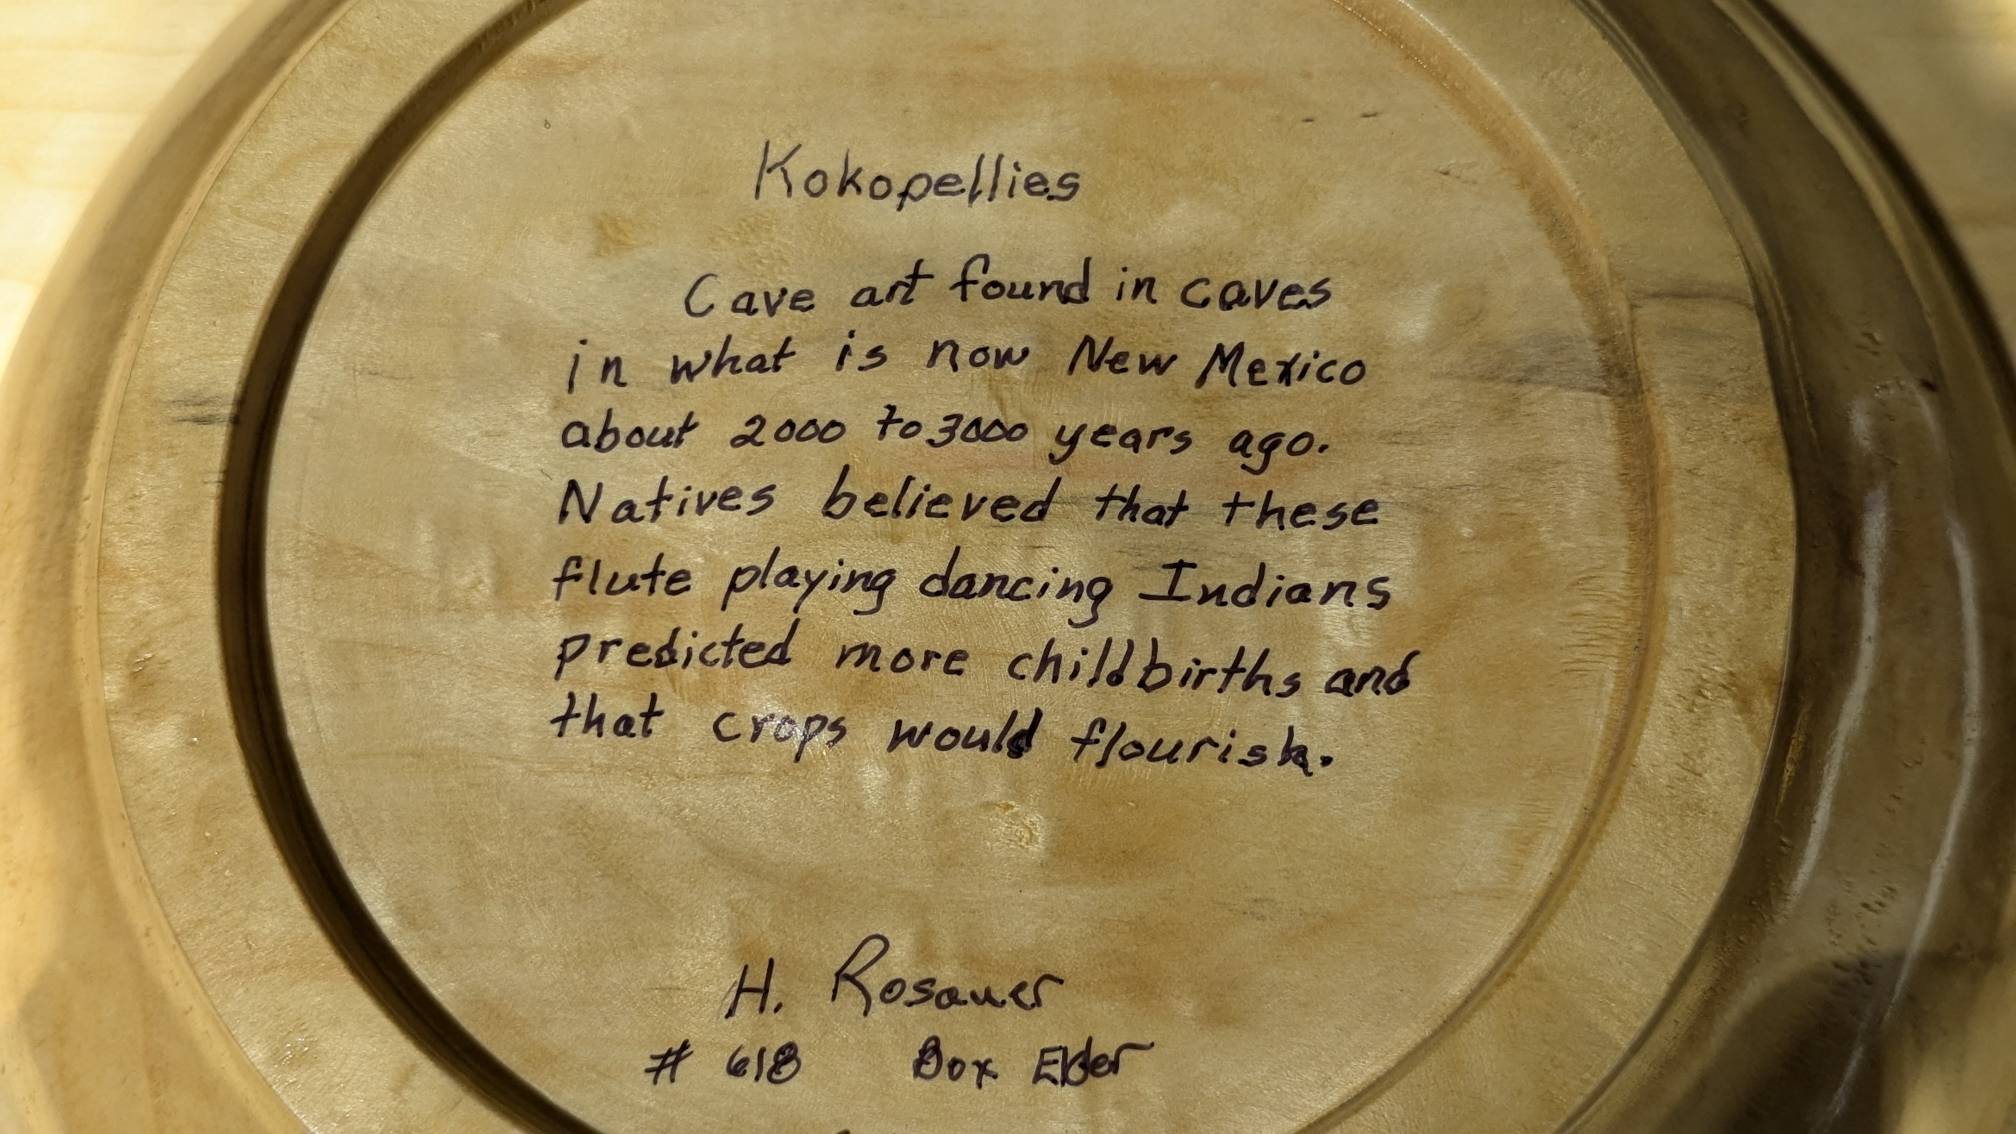 Kokopellies
Cave art found in caves
in what is now New Mexico
about 2000 to 3000 years ago.
Natives believed that these
flute playing dancing Indians
predicted more childbirths and
that crops would flourish.
H. Rosauer
# 618 Box Elder